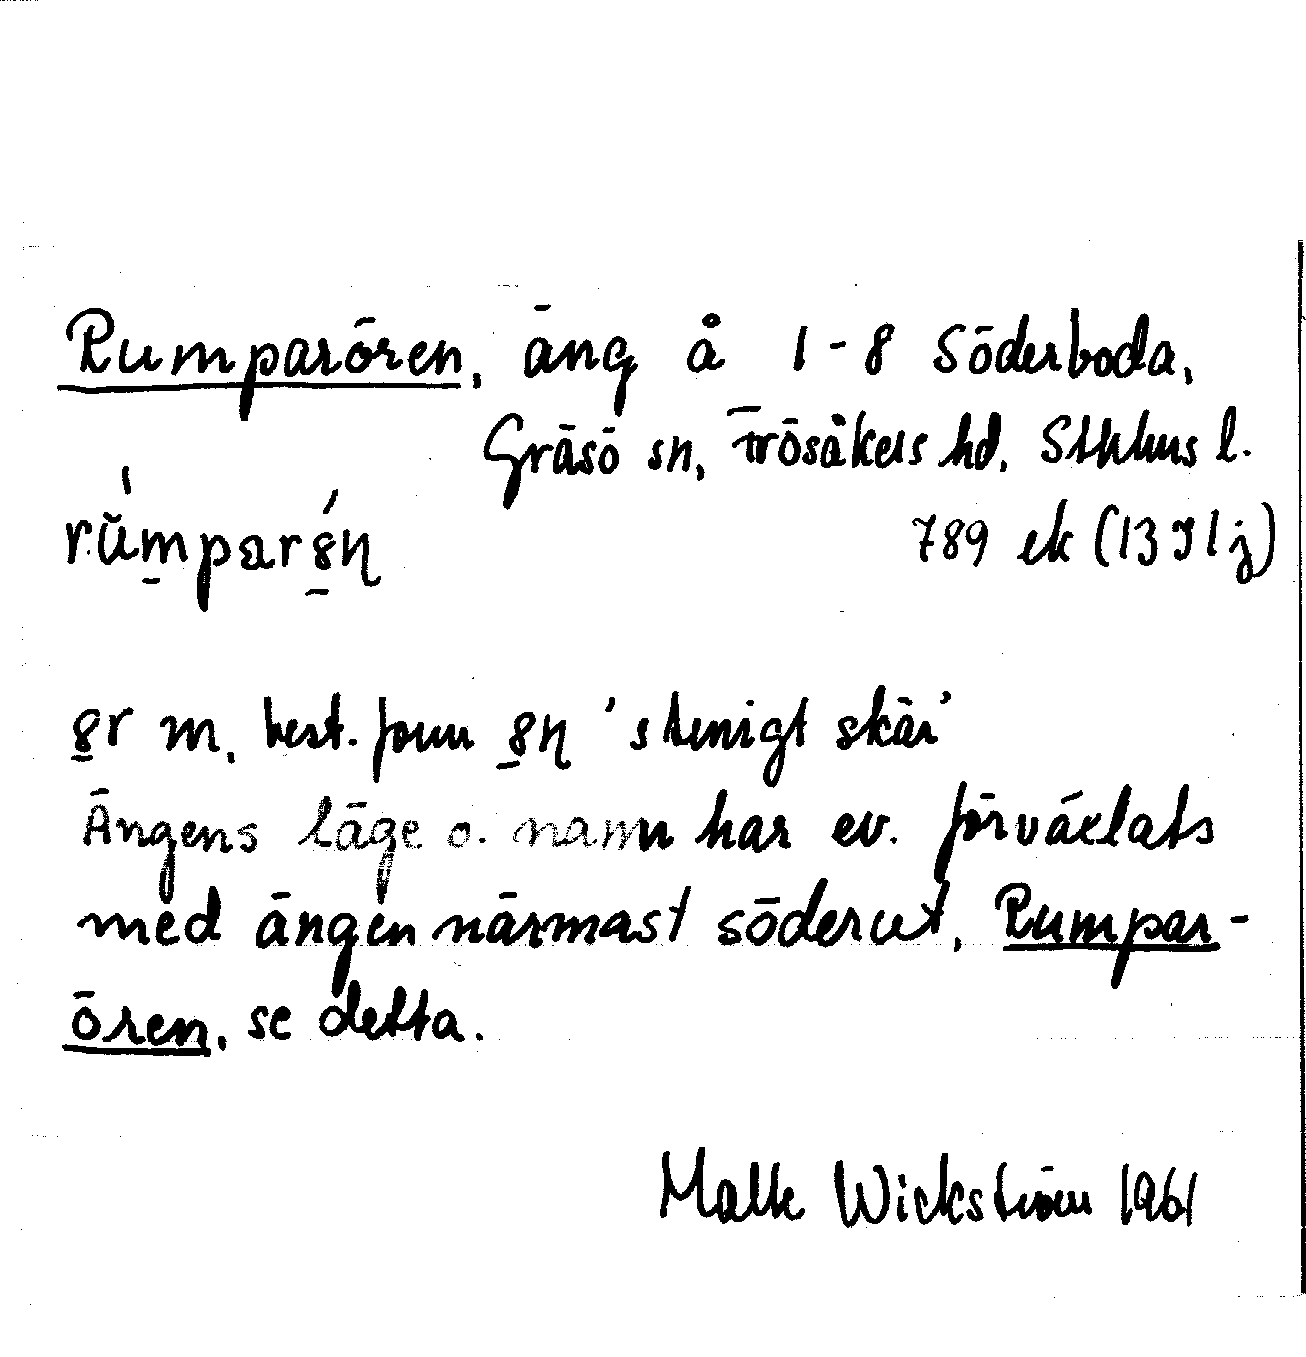 Rumparören, äng å 1-8 Söderboda,
Gräsö sn, Frösåkers hd, Sthlms l.
rŭ́m̱parȣ̱́ꞃ
789 ek (13I1j)
ȣ̱r m, best. form ȣ̱ꞃ 'stenigt skär'
Ängens läge o. namn har ev. förväxlats
med ängen närmast söderut, Rumpar-
ören, se detta.
Malte Wickström 1961